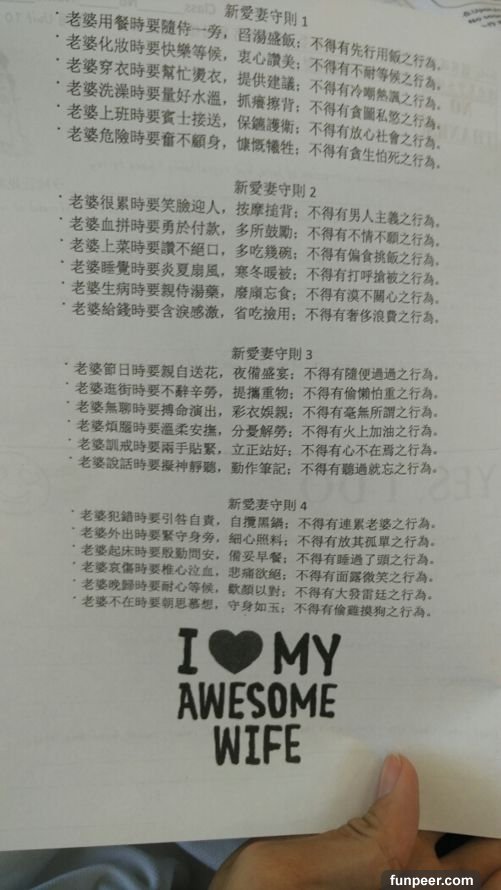 新愛妻守則 1
˙老婆用餐時要隨侍一旁，舀湯盛飯；不得有先行用飯之行為。
˙老婆化妝時要快樂等候，衷心讚美；不得有不耐等候之行為。
˙老婆穿衣時要幫忙燙衣，提供建議；不得有冷嘲熱諷之行為。
˙老婆洗澡時要量好水溫，抓癢擦背；不得有貪圖私慾之行為。
˙老婆上班時要賓士接送，保鑣護衛；不得有放心社會之行為。
˙老婆危險時要奮不顧身，慷慨犧牲；不得有貪生怕死之行為。
新愛妻守則 2
˙老婆很累時要笑臉迎人，按摩搥背；不得有男人主義之行為。
˙老婆血拼時要勇於付款，多所鼓勵；不得有不情不願之行為。
˙老婆上菜時要讚不絕口，多吃幾碗；不得有偏食挑飯之行為。
˙老婆睡覺時要炎夏扇風，寒冬暖被；不得有打呼搶被之行為。
˙老婆生病時要親侍湯藥，廢寢忘食；不得有漠不關心之行為。
˙老婆給錢時要含淚感激，省吃撿用；不得有奢侈浪費之行為。
新愛妻守則 3
˙老婆節日時要親自送花，夜備盛宴；不得有隨便過過之行為。
˙老婆逛街時要不辭辛勞，提攜重物；不得有偷懶怕重之行為。
˙老婆無聊時要搏命演出，彩衣娛親；不得有毫無所謂之行為。
˙老婆煩腦時要溫柔安撫，分憂解勞；不得有火上加油之行為。
˙老婆訓戒時要兩手貼緊，立正站好；不得有心不在焉之行為。
˙老婆說話時要擬神靜聽，勤作筆記；不得有聽過就忘之行為。
新愛妻守則 4
˙老婆犯錯時要引咎自責，自攬黑鍋；不得有連累老婆之行為。
˙老婆外出時要緊守身旁，細心照料；不得有放其孤單之行為。
˙老婆起床時要殷勤問安，備妥早餐；不得有睡過了頭之行為。
˙老婆哀傷時要椎心泣血，悲痛欲絕；不得有面露微笑之行為。
˙老婆晚歸時要耐心等候，歡顏以對；不得有大發雷廷之行為。
˙老婆不在時要朝思慕想，守身如玉；不得有偷雞摸狗之行為。
I ♥ MY
AWESOME
WIFE
funpeer.com